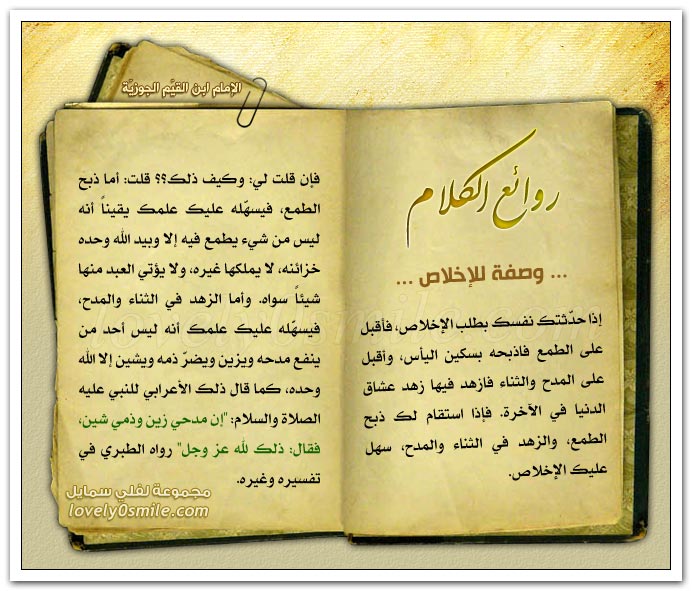 الإمام ابن القيّم الجوزيّة
روائع الكلام
... وصفة للإخلاص ...
إذا حدّثتك نفسك بطلب الإخلاص، فأقبل
على الطمع فاذبحه بسكين اليأس، وأقبل
على المدح والثناء فازهد فيها زهد عشاق
الدنيا في الآخرة. فإذا استقام لك ذبح
الطمع، والزهد في الثناء والمدح، سهل
عليك الإخلاص.
فإن قلت لي: وكيف ذلك؟؟ قلت: أما ذبح
الطمع، فيسهّله عليك علمك يقيناً أنه
ليس من شيء يطمع فيه إلا وبيد الله وحده
خزائنه، لا يملكها غيره، ولا يؤتي العبد منها
شيئاً سواه. وأما الزهد في الثناء والمدح،
فيسهّله عليك علمك أنه ليس أحد من
ينفع مدحه ويزين ويضرّ ذمه ويشين إلا الله
وحده، كما قال ذلك الأعرابي للنبي عليه
الصلاة والسلام: "إن مدحي زين وذمي شين،
فقال: ذلك لله عز وجل" رواه الطبري في
تفسيره وغيره.
مجموعة لفلي سمايل
lovely0smile.com